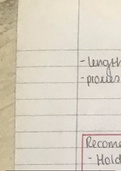 - length
- proxies
Recome
- Hold